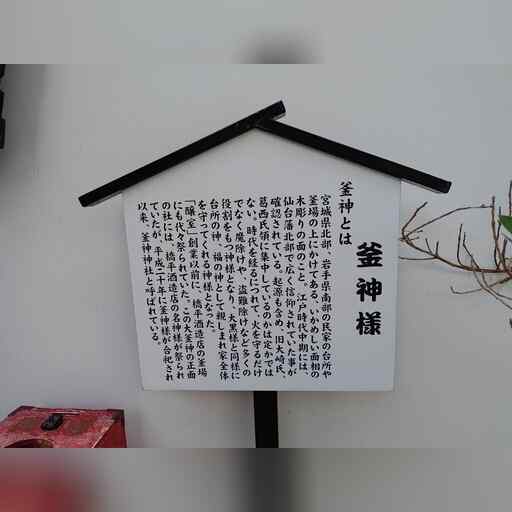 釜神様
釜神とは
宮城県北部、岩手県南部の民家の台所や
釜場の上にかけてある、いかめしい面相の
木彫りの面のこと。江戸時代中期には、
仙台藩北部で広く信仰されていた事が
確認されている。起源も含め、旧大崎氏、
葛西氏領に集中しているのかは定かでは
ない。時代を経るにつれて、火を守るだけ
でなく魔除けや、盗難除けなど多くの
役割をもつ神様となり、大黒様と同様に
台所の神、福の神として親しまれ家全体
を守ってくれる神様となった。
「醸室」創業以前に、橋平酒造店の釜場
にも代々祭られていた。この大釜神の正面
の社には、橋平酒造店の名神様が祭られ
ていたが、平成二十年に釜神様が合祀され
以来、釜神神社と呼ばれている。